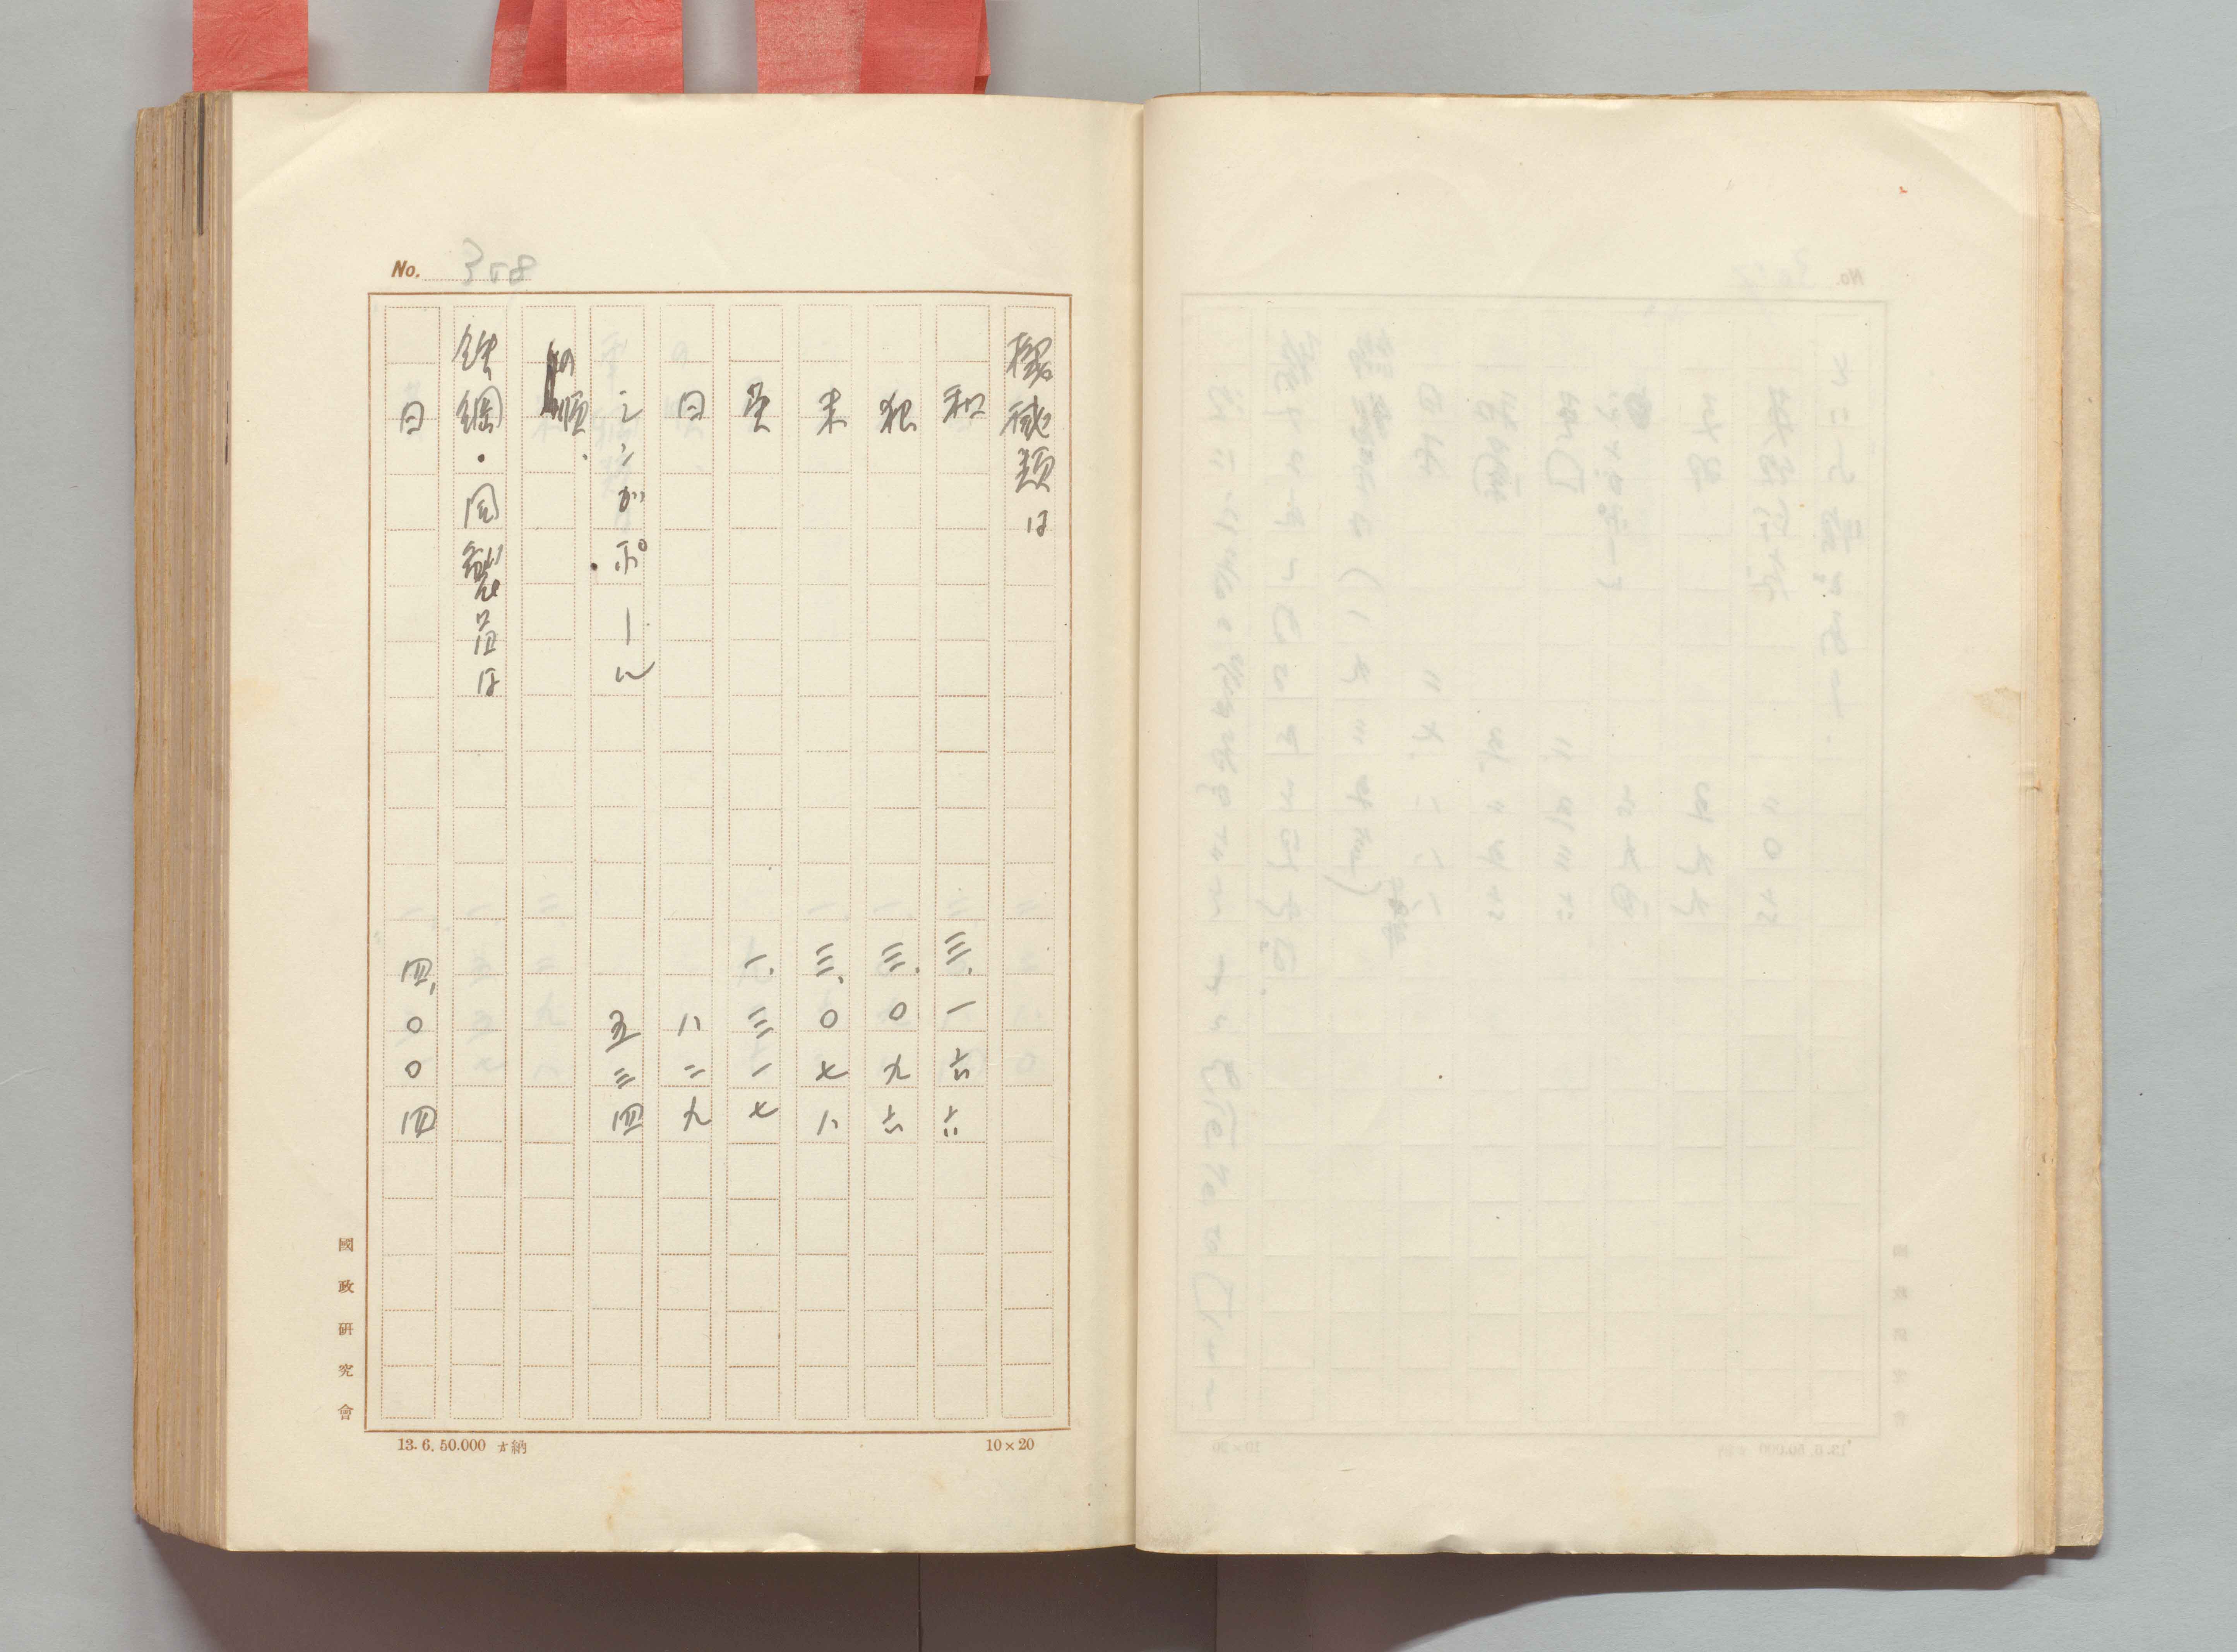 No. 308
機械類は
和 三、一六六
独 三、〇九六
米 三、〇七八
英 一、三一七
日 八二九
シンガポール 五三四
の順、
鉄鋼・同製品は
日 四、〇〇四
國政研究會
13.6.50.000 納
10×20